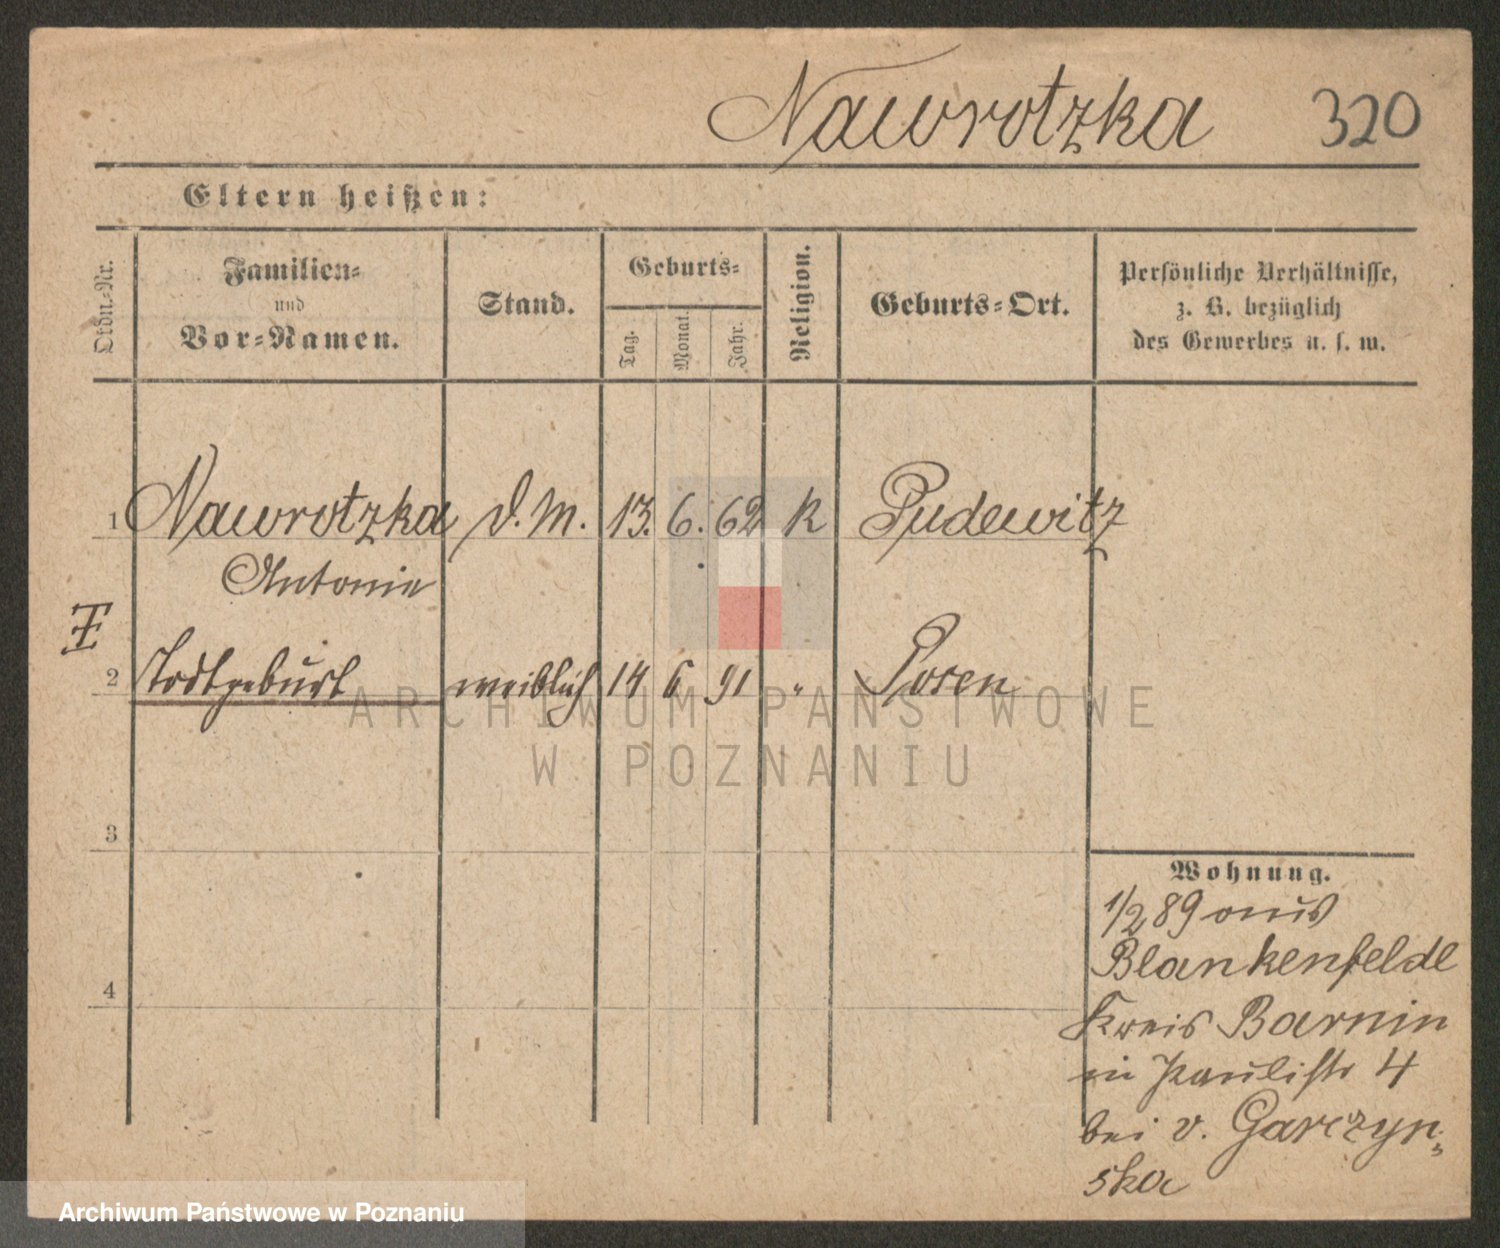 Nawrotzka 320
Eltern heißen:
Ordn.-Nr.
Familien-
und
Vor-Namen.
Stand.
Geburts-
Tag.
Monat.
Jahr.
Religion.
Geburts-Ort.
Persönliche Verhältnisse,
z. B. bezüglich
des Gewerbes u. s. w.
1 Nawrotzka d. M. 13. 6. 62 K Pudewitz
Antonie
2 Todtgeburt weiblich 14 6 91 " Posen
3
4
Wohnung.
1/2 89 aus
Blankenfelde
Kreis Barnin
in Paulistr 4
bei v. Garczyn-
ska
ARCHIWUM PAŃSTWOWE
W POZNANIU
Archiwum Państwowe w Poznaniu